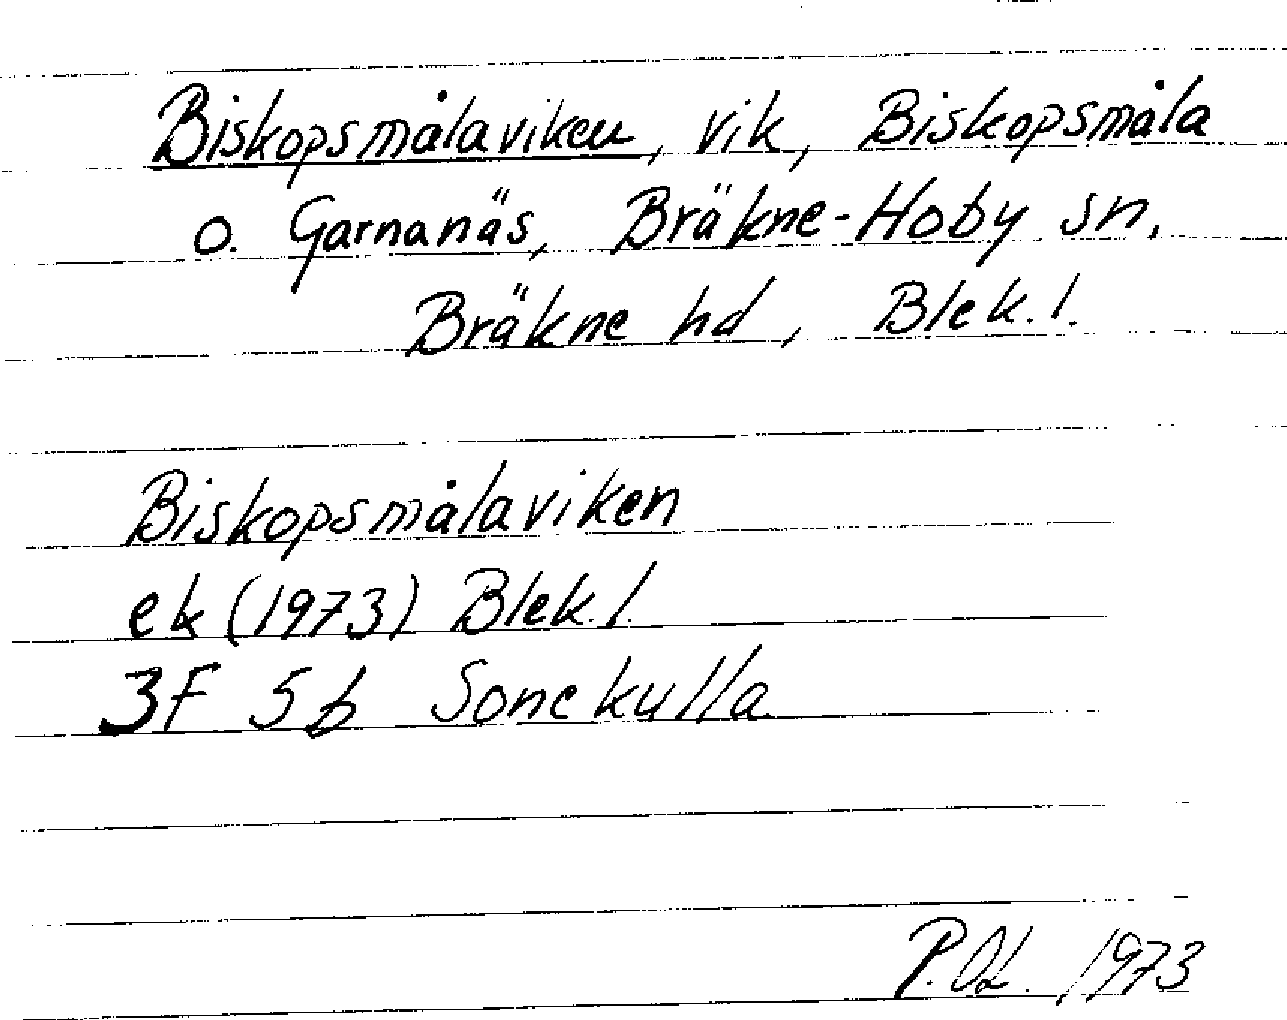 Biskopsmålaviken, vik, Biskopsmåla
o. Garnanäs, Bräkne-Hoby sn,
Bräkne hd, Blek. l.
Biskopsmålaviken
ek (1973) Blek. l.
3F 5b Sonekulla
P.Ol. 1973